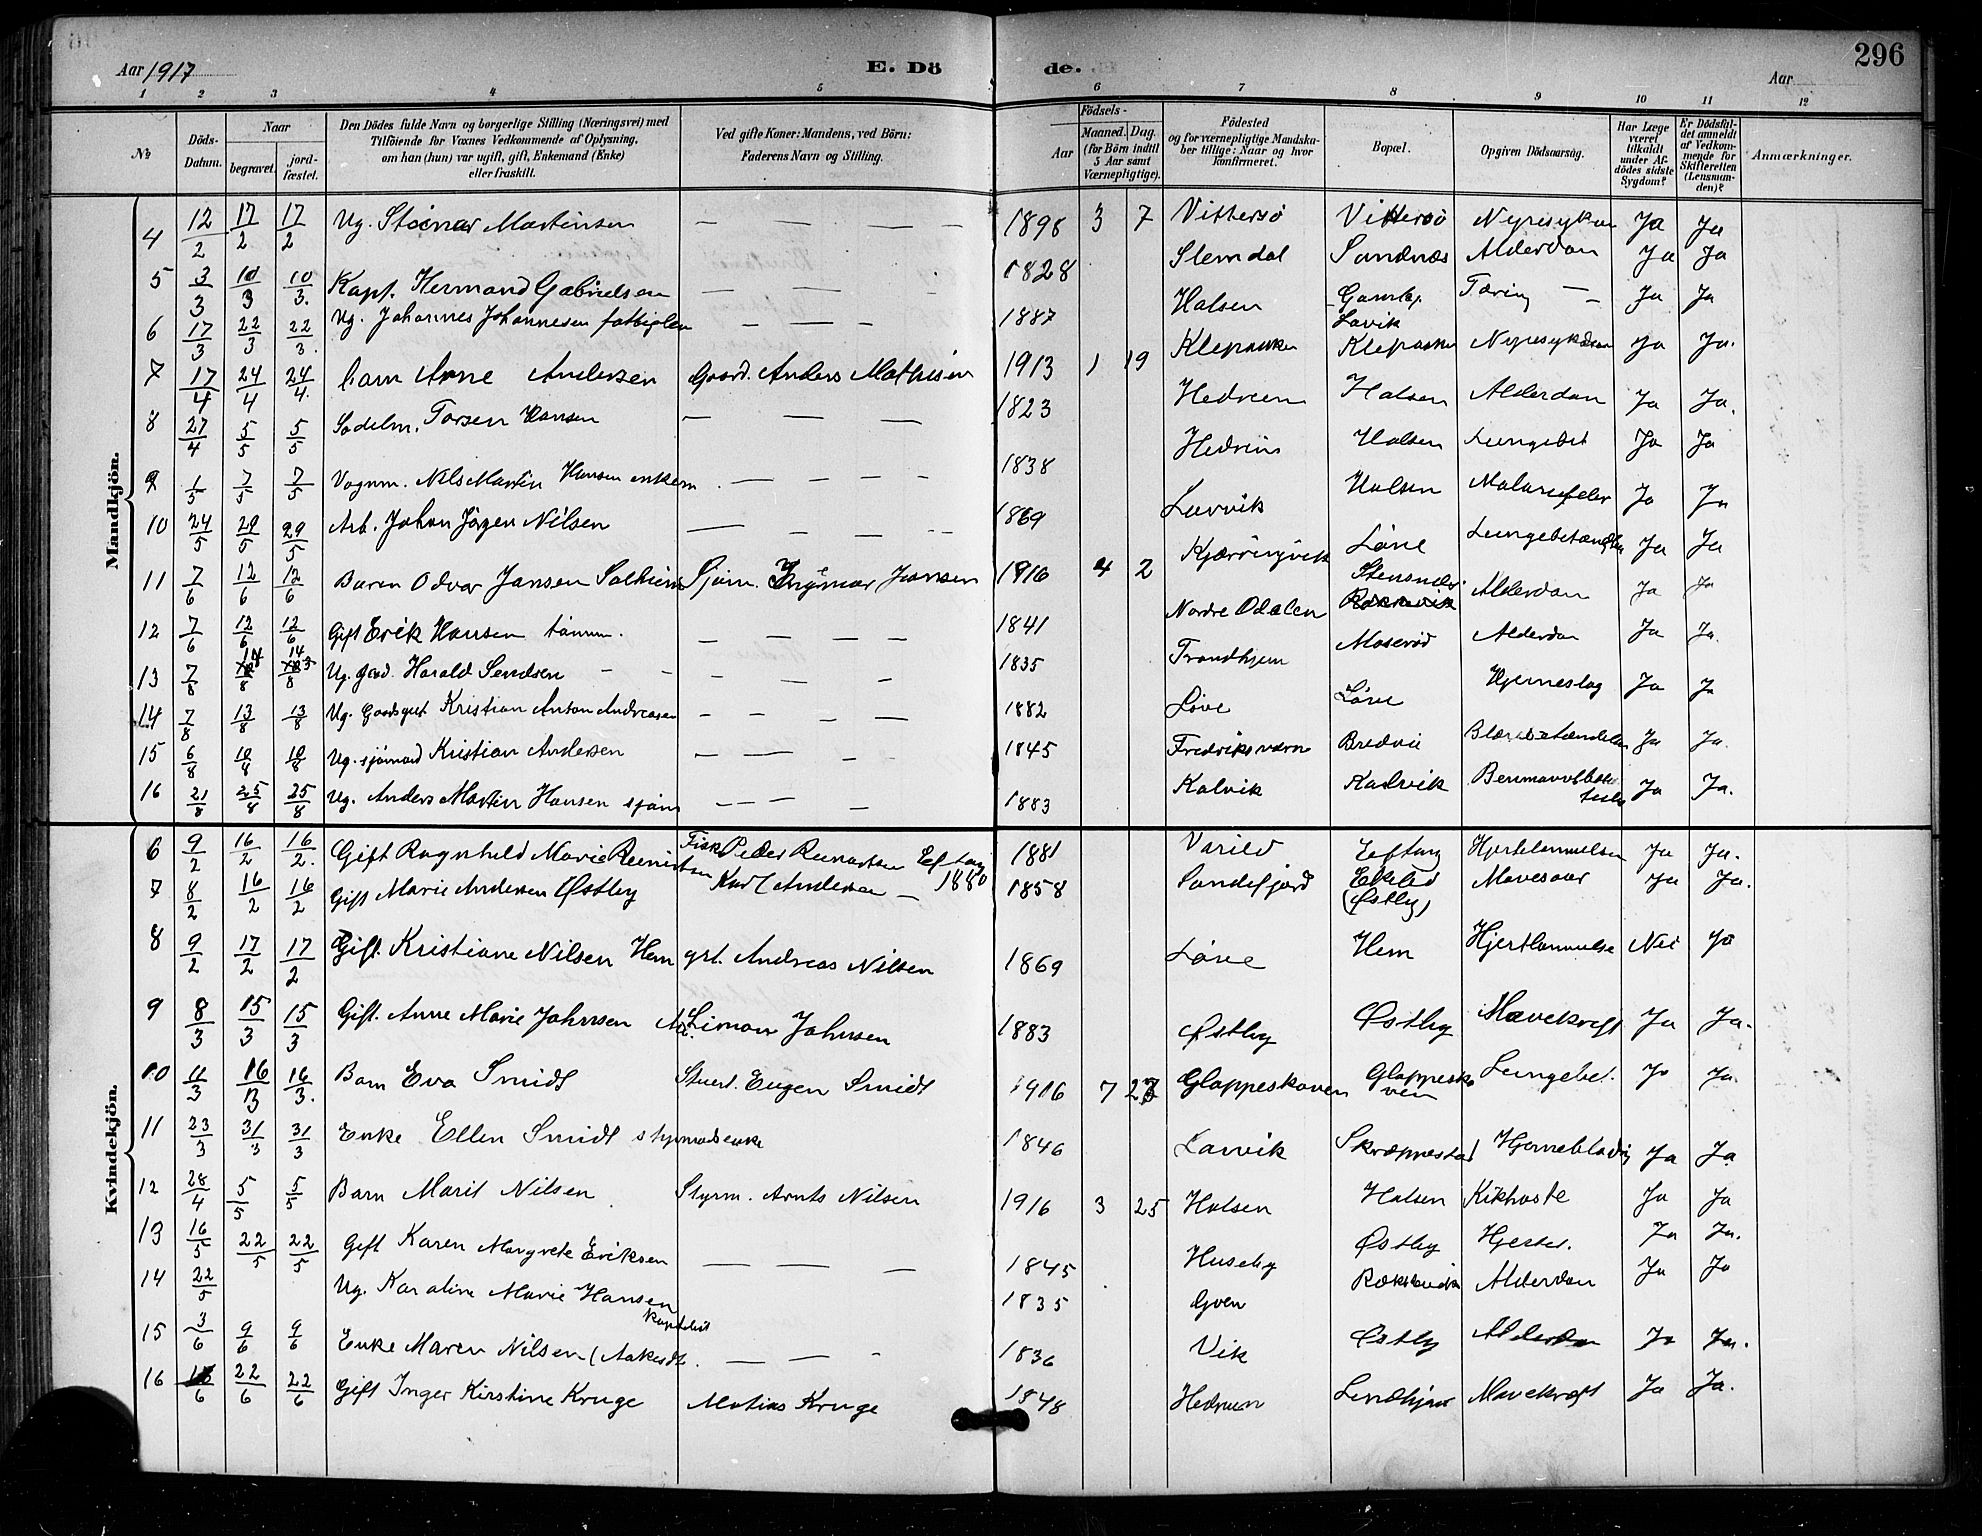 Aar 1917 E. Dö de. Aar 296
1 2 3 4 5 6 7 8 9 10 11 12
№ Döds-Datum. Naar begravet. jordfæstet. Den Dödes fulde Navn og borgerlige Stilling (Næringsvei) med Tilföiende for Voxnes Vedkommende af Oplysning, om han (hun) var ugift, gift, Enkemand (Enke) eller fraskilt. Ved gifte Koner: Mandens, ved Börn: Faderens Navn og Stilling. Födsels- Aar Maaned. Dag. (for Börn indtil 5 Aar samt Værnepligtige). Födested og for værnepligtige Mandskaber tillige: Naar og hvor konfirmeret. Bopæl. Opgiven Dödsaarsag. Har Læge været tilkaldt under Afdödes sidste Sygdom? Er Dödsfaldet anmeldt af Vedkommende for Skifteretten (Lensmanden)? Anmærkninger.
Mandkjön.
4 12/2 17/2 17/2 Ug. Steinar Martinsen — — — — 1898 3 7 Vittersö Vittersö Nyresykdom Ja Ja
5 3/3 10/3 10/3. Kapt. Hermand Gabrielsen — — — 1828 Slemdal Sandnæs Alderdom Ja Ja
6 17/3 22/3 22/3. Ug. Johannes Johannesen — — — 1887 Halsen Gamleg. Lavik Tæring — Ja Ja
7 17/4 24/4 24/4. Barn Arne Andersen Gaard. Anders Mathisen 1913 1 19 Klepaaker Klepaaker Nyresykdom Ja Ja.
8 27/4 5/5 5/5 Sadelm. Torsen Hansen — — — 1823 Hedrum Halsen Alderdom Ja Ja.
9 1/5 7/5 7/5 Vognm. Nils Martin Hansen enkem — — — — 1838 Hedrum Halsen Lungebet Ja Ja
10 24/5 29/5 29/5 Arb. Johan Jörgen Nilsen — — — — 1869 Larvik Halsen Malariefeber Ja Ja
11 7/6 12/6 12/6 Barn Odvar Jansen Solheim Sjøm. Ingemar Jansen 1916 4 2 Kjærringvik Løve Lungebetændelse Ja Ja
12 7/6 12/6 12/6 Gift Erik Hansen tömm. — — — — 1841 Nordre Odalen Stensnæs Alderdom Ja Ja
13 7/8 14/8 14/8 Ug. gard. Harald Sendsen — — — — — 1835 Trondhjem Moserød Alderdom Ja Ja.
14 7/8 13/8 13/8 Ug. Gaardsgut Kristian Anton Andreasen — — — — 1882 Løve Løve Hjerneslag Ja Ja
15 6/8 10/8 10/8 Ug. sjömand Kristian Andersen — — — 1845 Fredriksværn Bredvei Blærebetændelse Ja Ja.
16 21/8 25/8 25/8 Ug. Anders Martin Hansen sjöm — — — — 1883 Kalvik Kalvik Ja Ja.
Kvindekjön.
6 9/2 16/2 16/2. Gift Ragnhild Marie Reenertsen Fisk. Peder Reenertsen Eftang 1880 1881 Varild Eftang Hjertelammelse Ja Ja.
7 8/2 16/2 16/2 Gift Marie Andersen Østby Karl Andersen — 1858 Sandefjord Ekelid (Østby) Mavesaar Ja Ja.
8 9/2 17/2 17/2 Gift. Kristiane Nilsen Hem grt. Andreas Nilsen 1869 Løve Hem Hjertlammelse Nei Ja
9 8/3 15/3 15/3 Gift. Anne Marie Johnsen Arb. Simon Johnsen 1883 Østby Østby Mavekræft Ja Ja.
10 11/3 16/3 16/3. Barn Eva Smidt Stuert. Eugen Smidt 1916 7 23 Gloppeskoven Gloppeskoven Lungebet. Ja Ja.
11 23/3 31/3 31/3 Enke Ellen Smidt styrmandsenke 1846 Larvik Skræppestad Hjerneblødn Ja Ja
12 28/4 5/5 5/5 Barn Marit Nilsen Styrm. Arnts Nilsen 1916 3 25 Halsen Halsen Kikhoste Ja Ja
13 16/5 22/5 22/5 Gift Karen Margrete Eriksen — — — 1845 Huseby Østby Hjertef. Ja Ja.
14 22/5 Ug. Karoline Marie Hansen 1835 Goen Rækkevik Alderdom Ja Ja
15 3/6 9/6 9/6 Enke Maren Nilsen — — — 1836 Vik Østby Alderdom Ja Ja.
16 /6 22/6 22/6 Gift Inger Kirstine Kruge Matias Kruge 1848 Hedrum Lindhjem Mavekræft Ja Ja.